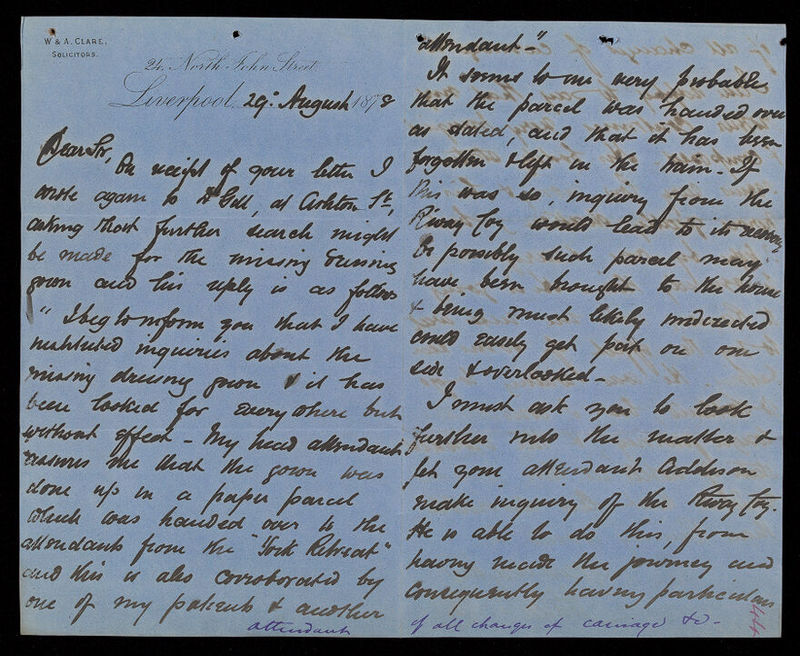 W & A. CLARE,
SOLICITORS.
24, North John Street
Liverpool, 29: August 1878
Dear Sir,
On receipt of your letter I
wrote again to Dr Gill, at Ashton St.,
asking that further search might
be made for the missing dressing
gown and his reply is as follows
"I beg to inform you that I have
instituted inquiries about the
missing dressing gown & it has
been looked for everywhere but
without effect - My head attendant
assures me that the gown was
done up in a paper parcel
which was handed over to the
attendants from the "York Retreat"
and this is also corroborated by
one of my patients & another
attendant
attendant-"
It seems to me very probable
that the parcel was handed over
as stated, and that it has been
forgotten & left in the train - If
this was so, inquiry from the
Rway Coy would lead to its recovery
Or possibly such parcel may
have been brought to the house
& being most likely undirected
could easily get put on one
side & overlooked -
I must ask you to look
further into the matter &
let your attendant Addison
make inquiry of the Rway Coy.
He is able to do this, from
having made the journey and
consequently having particulars
of all changes of carriage &c -
44